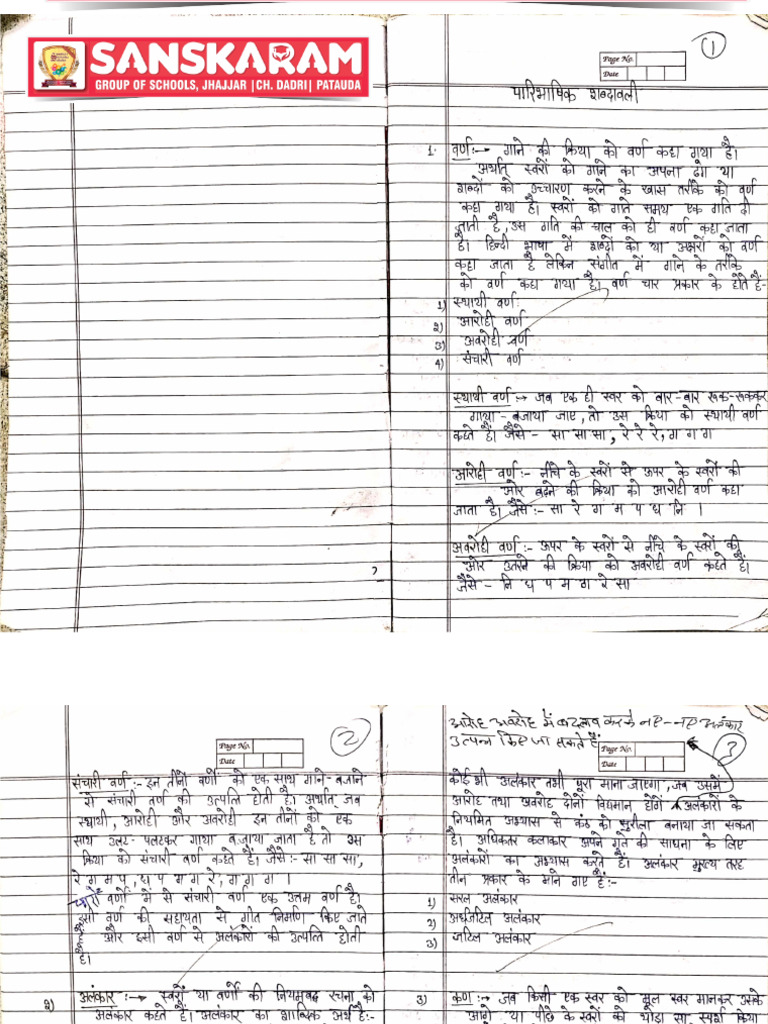 SANSKARAM
GROUP OF SCHOOLS, JHAJJAR |CH. DADRI| PATAUDA
1
Page No.
Date
पारिभाषिक शब्दावली
1. वर्ण :→ गाने की क्रिया को वर्ण कहा गया है।
अर्थात् स्वरों को गाने का अपना ढंग या
शब्दों को उच्चारण करने के खास तरीके को वर्ण
कहा गया है। स्वरों को गाते समय एक गति दी
जाती है, उस गति की चाल को ही वर्ण कहा जाता
है। हिन्दी भाषा में शब्दों को या अक्षरों को वर्ण
कहा जाता है लेकिन संगीत में गाने के तरीके
को वर्ण कहा गया है। वर्ण चार प्रकार के होते हैं:-
1) स्थायी वर्ण
2) आरोही वर्ण
3) अवरोही वर्ण
4) संचारी वर्ण
स्थायी वर्ण :→ जब एक ही स्वर को बार-बार रूक-रूककर
गाया-बजाया जाए, तो उस क्रिया को स्थायी वर्ण
कहते हैं। जैसे - सा सा सा, रे रे रे, ग ग ग
आरोही वर्ण :- नीचे के स्वरों से ऊपर के स्वरों की
ओर बढ़ने की क्रिया को आरोही वर्ण कहा
जाता है। जैसे :- सा रे ग म प ध नि ।
अवरोही वर्ण :- ऊपर के स्वरों से नीचे के स्वरों की
ओर उतरने की क्रिया को अवरोही वर्ण कहते हैं।
जैसे - नि ध प म ग रे सा
2
Page No.
Date
संचारी वर्ण :- इन तीनों वर्णों को एक साथ गाने-बजाने
से संचारी वर्ण की उत्पत्ति होती है। अर्थात् जब
स्थायी, आरोही और अवरोही इन तीनों को एक
साथ उलट-पलटकर गाया बजाया जाता है तो उस
क्रिया को संचारी वर्ण कहते हैं। जैसे :- सा सा सा,
रे ग म प, ध प म ग रे, ग ग ग ।
चारों वर्णों में से संचारी वर्ण एक उत्तम वर्ण है।
इसी वर्ण की सहायता से गीत निर्माण किए जाते
हैं और इसी वर्ण से अलंकारों की उत्पति होती
है।
2) अलंकार :→ स्वरों या वर्णों की नियमबद्ध रचना को
अलंकार कहते हैं। अलंकार का शाब्दिक अर्थ है:-
आरोह अवरोह में बदलाव करके नए-नए अलंकार
उत्पन्न किए जा सकते हैं
3
Page No.
Date
कोई भी अलंकार तभी पूरा माना जाएगा, जब उसमें
आरोह तथा अवरोह दोनों विद्यमान होंगे। अलंकारों के
नियमित अभ्यास से कंठ को सुरीला बनाया जा सकता
है। अधिकतर कलाकार अपने गले की साधना के लिए
अलंकारों का अभ्यास करते हैं। अलंकार मुख्य तरह
तीन प्रकार के माने गए हैं:-
1) सरल अलंकार
2) अर्धजटिल अलंकार
3) जटिल अलंकार
3) कण :→ जब किसी एक स्वर को मूल स्वर मानकर उसके
आगे या पीछे के स्वरों को थोड़ा सा स्पर्श किया